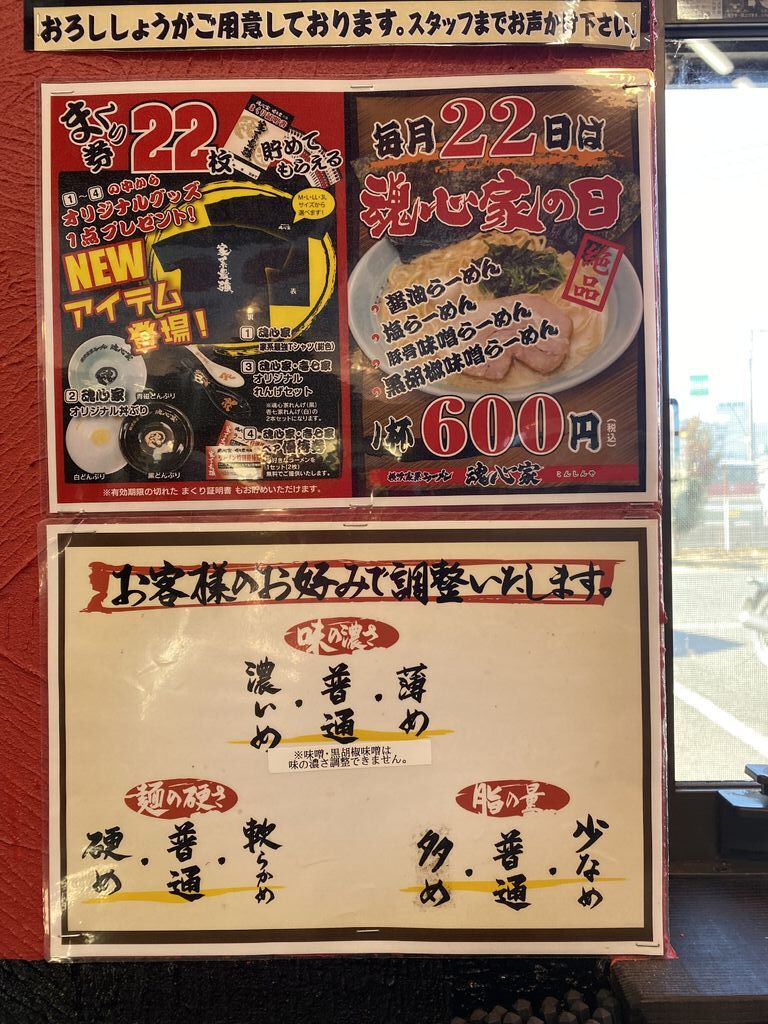 おろししょうがご用意しております。スタッフまでお声かけ下さい。
まくり券22枚、貯めてもらえる
1~4の中から
オリジナルグッズ
1点プレゼント!
M・L・LL・3L
サイズから
選べます!
NEW
アイテム
登場!
家系最強
表
裏
1 魂心家
家系最強Tシャツ(紺色)
2 魂心家
オリジナル丼ぶり
青磁どんぶり
白どんぶり
黒どんぶり
3 魂心家・壱七家
オリジナル
れんげセット
※魂心家れんげ(黒)
壱七家れんげ(白)の
2本セットになります。
4 魂心家・壱七家
1セット(2枚)
無料でご提供いたします。
※有効期限の切れた まくり証明書 もお貯めいただけます。
毎月22日は
魂心家の日
絶品
醤油らーめん
塩らーめん
豚骨味噌らーめん
黒胡椒味噌らーめん
1杯600円(税込)
横浜家系ラーメン 魂心家 こんしんや
お客様のお好みで調整いたします。
味の濃さ
濃いめ・普通・薄め
※味噌・黒胡椒味噌は
味の濃さ調整できません。
麺の硬さ
硬め・普通・軟らかめ
脂の量
多め・普通・少なめ